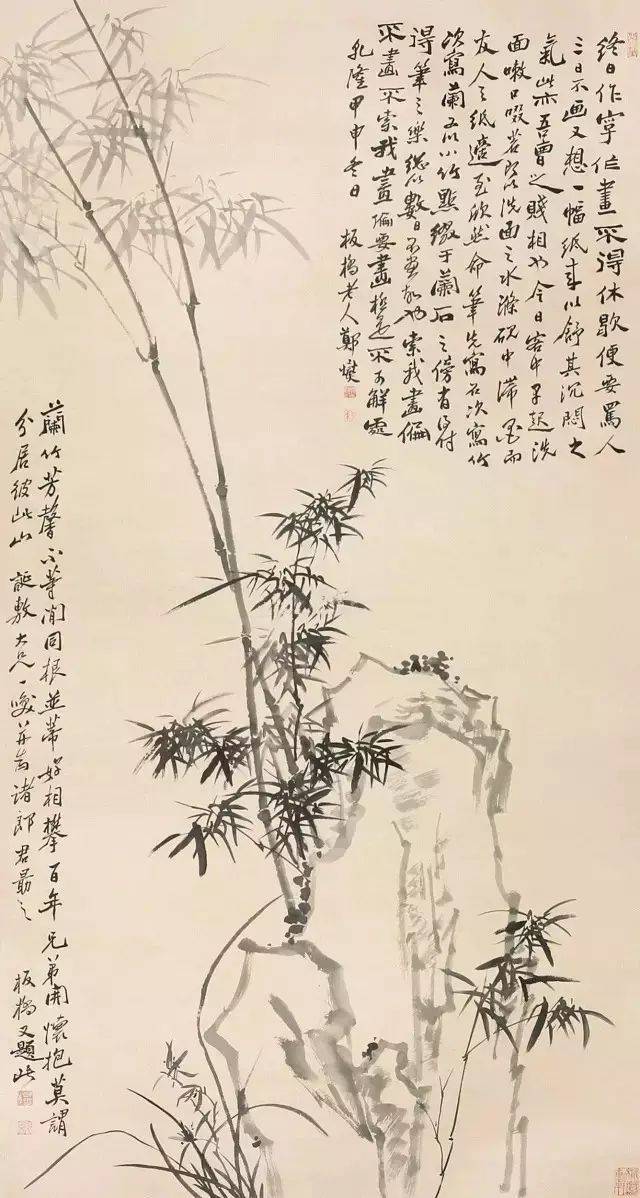 終日作字作畫不得休歇便要罵人
三日不画又想一幅紙来以舒其沉悶之
氣此亦吾曹之賤相也今日客中早起洗
面嗽口啜茗即以洗面之水滌硯中滯墨而
友人之紙適至欣然命筆先寫石次寫竹
次寫蘭又以小竹點綴于蘭石之傍有
得筆之樂總以數日不画故也索我畫偏
不畫不索我畫偏要畫極是不可解處
乾隆甲申冬日 板橋老人鄭燮
蘭竹芳馨不等閒同根並蒂好相攀百年兄弟開懷抱莫謂
分居彼此山 誕敷大兄一咲并為諸郎君勖之 板橋又題此